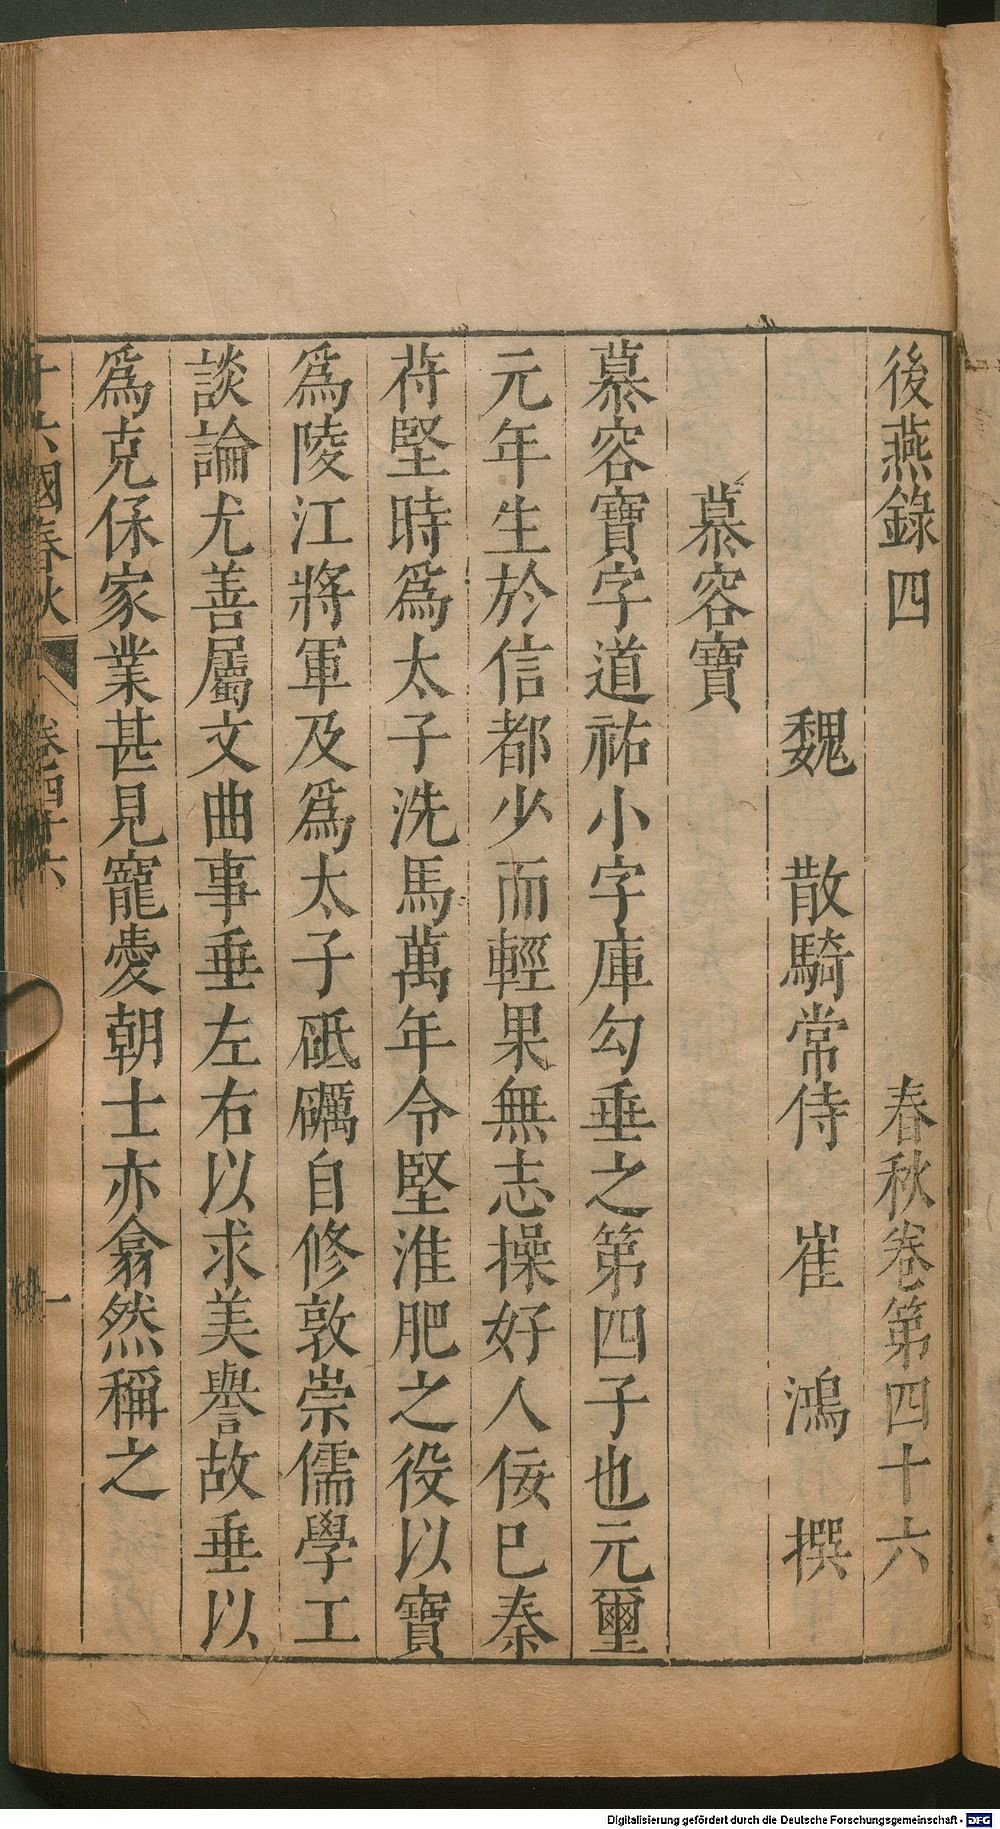 後燕錄四　春秋卷第四十六
魏　散騎常侍　崔　鴻　撰
慕容寶
慕容寶字道祐小字庫勾垂之第四子也元璽
元年生於信都少而輕果無志操好人佞巳秦
苻堅時爲太子洗馬萬年令堅淮肥之役以寶
爲陵江將軍及爲太子砥礪自修敦崇儒學工
談論尤善屬文曲事垂左右以求美譽故垂以
爲克保家業甚見寵愛朝士亦翕然稱之
十六國春秋　卷四十六　一
Digitalisierung gefördert durch die Deutsche Forschungsgemeinschaft - DFG